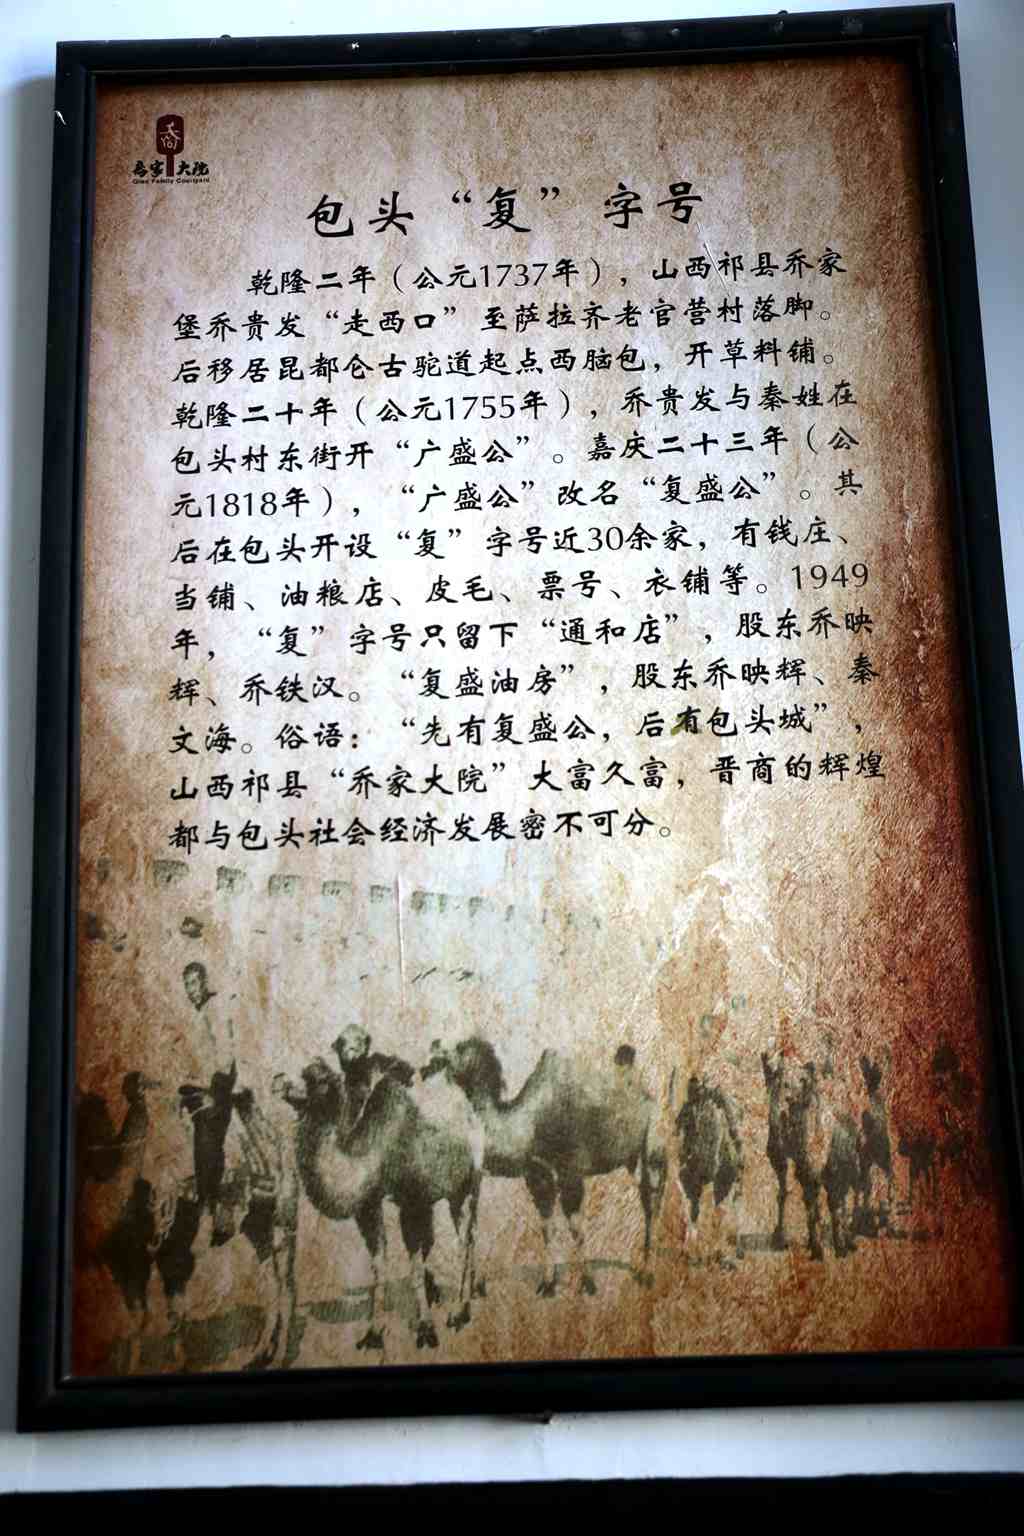 乔家大院
Qiao Family Courtyard
包头“复”字号
乾隆二年（公元1737年），山西祁县乔家
堡乔贵发“走西口”至萨拉齐老官营村落脚。
后移居昆都仑古驼道起点西脑包，开草料铺。
乾隆二十年（公元1755年），乔贵发与秦姓在
包头村东街开“广盛公”。嘉庆二十三年（公
元1818年），“广盛公”改名“复盛公”。其
后在包头开设“复”字号近30余家，有钱庄、
当铺、油粮店、皮毛、票号、衣铺等。1949
年，“复”字号只留下“通和店”，股东乔映
辉、乔铁汉。“复盛油房”，股东乔映辉、秦
文海。俗语：“先有复盛公，后有包头城”，
山西祁县“乔家大院”大富久富，晋商的辉煌
都与包头社会经济发展密不可分。